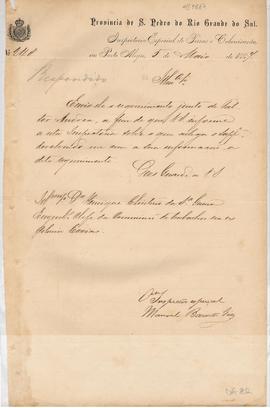 Provincia de S. Pedro do Rio Grande do Sul.
Inspectoria Especial de Terras e Colonisação
em Porto Alegre, 5 de Maio de 1887
Nº 248
Respondido
Illmo Sr.
Envio o requerimento junto de
a fim de que V.S. informe
a esta Inspectoria sobre o que allega o supp.
devolvendo me com a sua informação o
dito requerimento.
Deus Guarde a V.S.
Illmo Snr. Dr. Henrique
Engenheiro Chefe da Commissão de trabalhos em
Colonia Caxias
O Inspector especial
Manoel Barreto